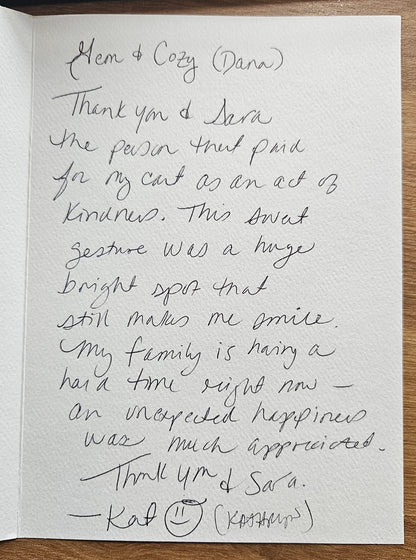 Gem & Cozy (Dana)
Thank you & Sara
the person that paid
for my cart as an act of
kindness. This sweet
gesture was a huge
bright spot that
still makes me smile.
My family is having a
hard time right now —
an unexpected happiness
was much appreciated.
—Thank you & Sara.
—Kat (KATHRYN)